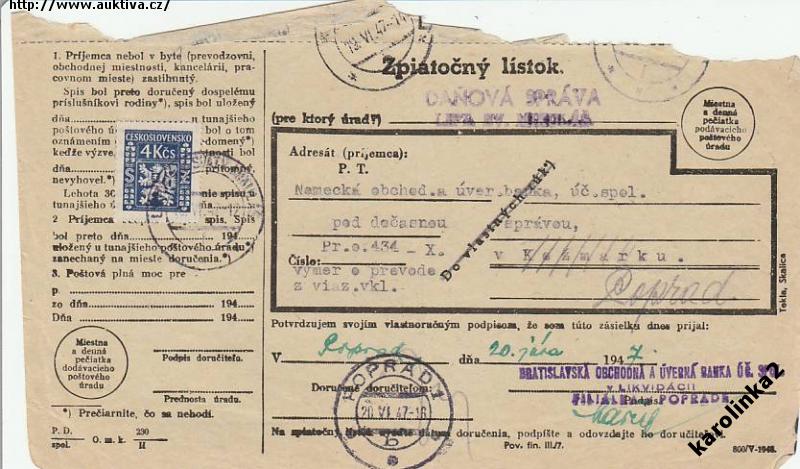 http://www.auktiva.cz/
1. Príjemca nebol v byte (prevodzovni,
obchodnej miestnosti, kancelárii, pra-
covnom mieste) zastihnutý.
Spis bol preto doručený dospelému
príslušníkovi rodiny*), spis bol uložený
dňa 194 u tunajšieho
poštového ú bol o tom
oznámením edomený*)
keďže výzve bol
dňa prítomný
nevyhovel.*)
Lehota 30 enie spisu u
tunajšieho ú 194
2 Príjemca spis. Spis
bol preto dňa 194
uložený u tunajšieho poštového úradu*)
zanechaný na mieste doručenia.*)
3. Poštová plná moc pre
p.
zo dňa 194
Dňa 194
Miestna
a denná
pečiatka
dodávacieho
poštového
úradu
Podpis doručiteľa.
Prednosta úradu.
*) Prečiarnite, čo sa nehodí.
P. D. 230
spol. O. m. k. H
ČESKOSLOVENSKO
4 Kčs
S
19. VI. 47-14
Zpiatočný lístok.
DAŇOVÁ SPRÁVA
(pre ktorý úrad?) LIPT. SV. MIKULÁŠ
Miestna
a denná
pečiatka
podávacieho
poštového
úradu
Adresát (príjemca):
P. T.
Nemecká obchod.a úver.banka, úč.spol.
pod dočasnou správou,
Pr.o.434 - X.
Číslo: v Kežmarku.
výmer o prevode
z viaz.vkl.
Do vlastných rúk*)
Poprad
Tekla, Skalica
Potvrdzujem svojím vlastnoručným podpisom, že som túto zásielku dnes prijal:
V Poprad, dňa 20. júna 1947.
BRATISLAVSKÁ OBCHODNÁ A ÚVERNÁ BANKA ÚČ.
V LIKVIDÁCII
FILIÁLKA POPRAD
Doručené doručiteľom:
Podpis:
POPRAD 1
20. VI. 47-16
b
Na zpiatočný lístok uveďte dátum doručenia, podpíšte a odovzdajte ho doručiteľovi.
Pov. fin. III./7.
800/V-1946.
karolinka2